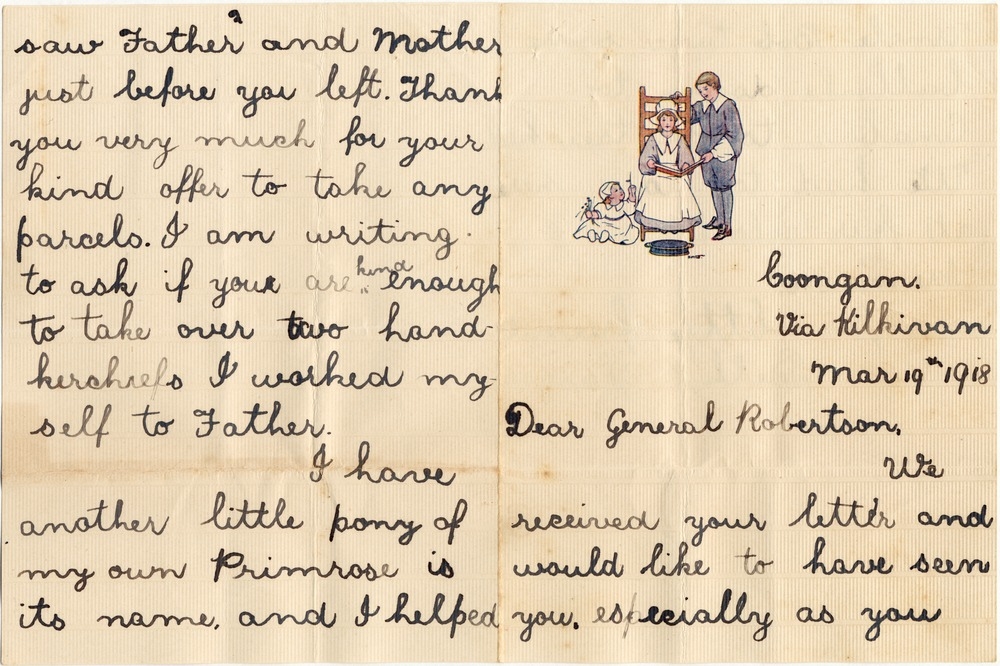 Coongan.
Via Kilkivan
Mar 19th 1918
Dear General Robertson,
We
received your letter and
would like to have seen
you, especially as you
saw Father and Mother
just before you left. Thank
you very much for your
kind offer to take any
parcels. I am writing
to ask if you are kind enough
to take over two hand-
kerchiefs I worked my-
self to Father.
I have
another little pony of
my own Primrose is
its name, and I helped